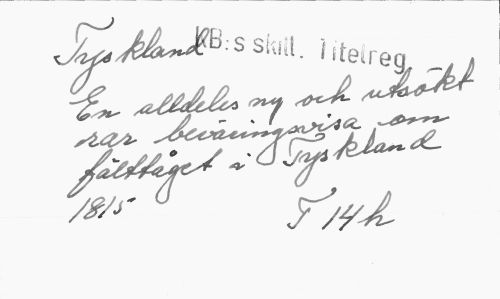 Tyskland KB:s skill. Titelreg
En alldeles ny och utsökt
rar beväringsvisa om
fälttåget i Tyskland
1815 T 14 h